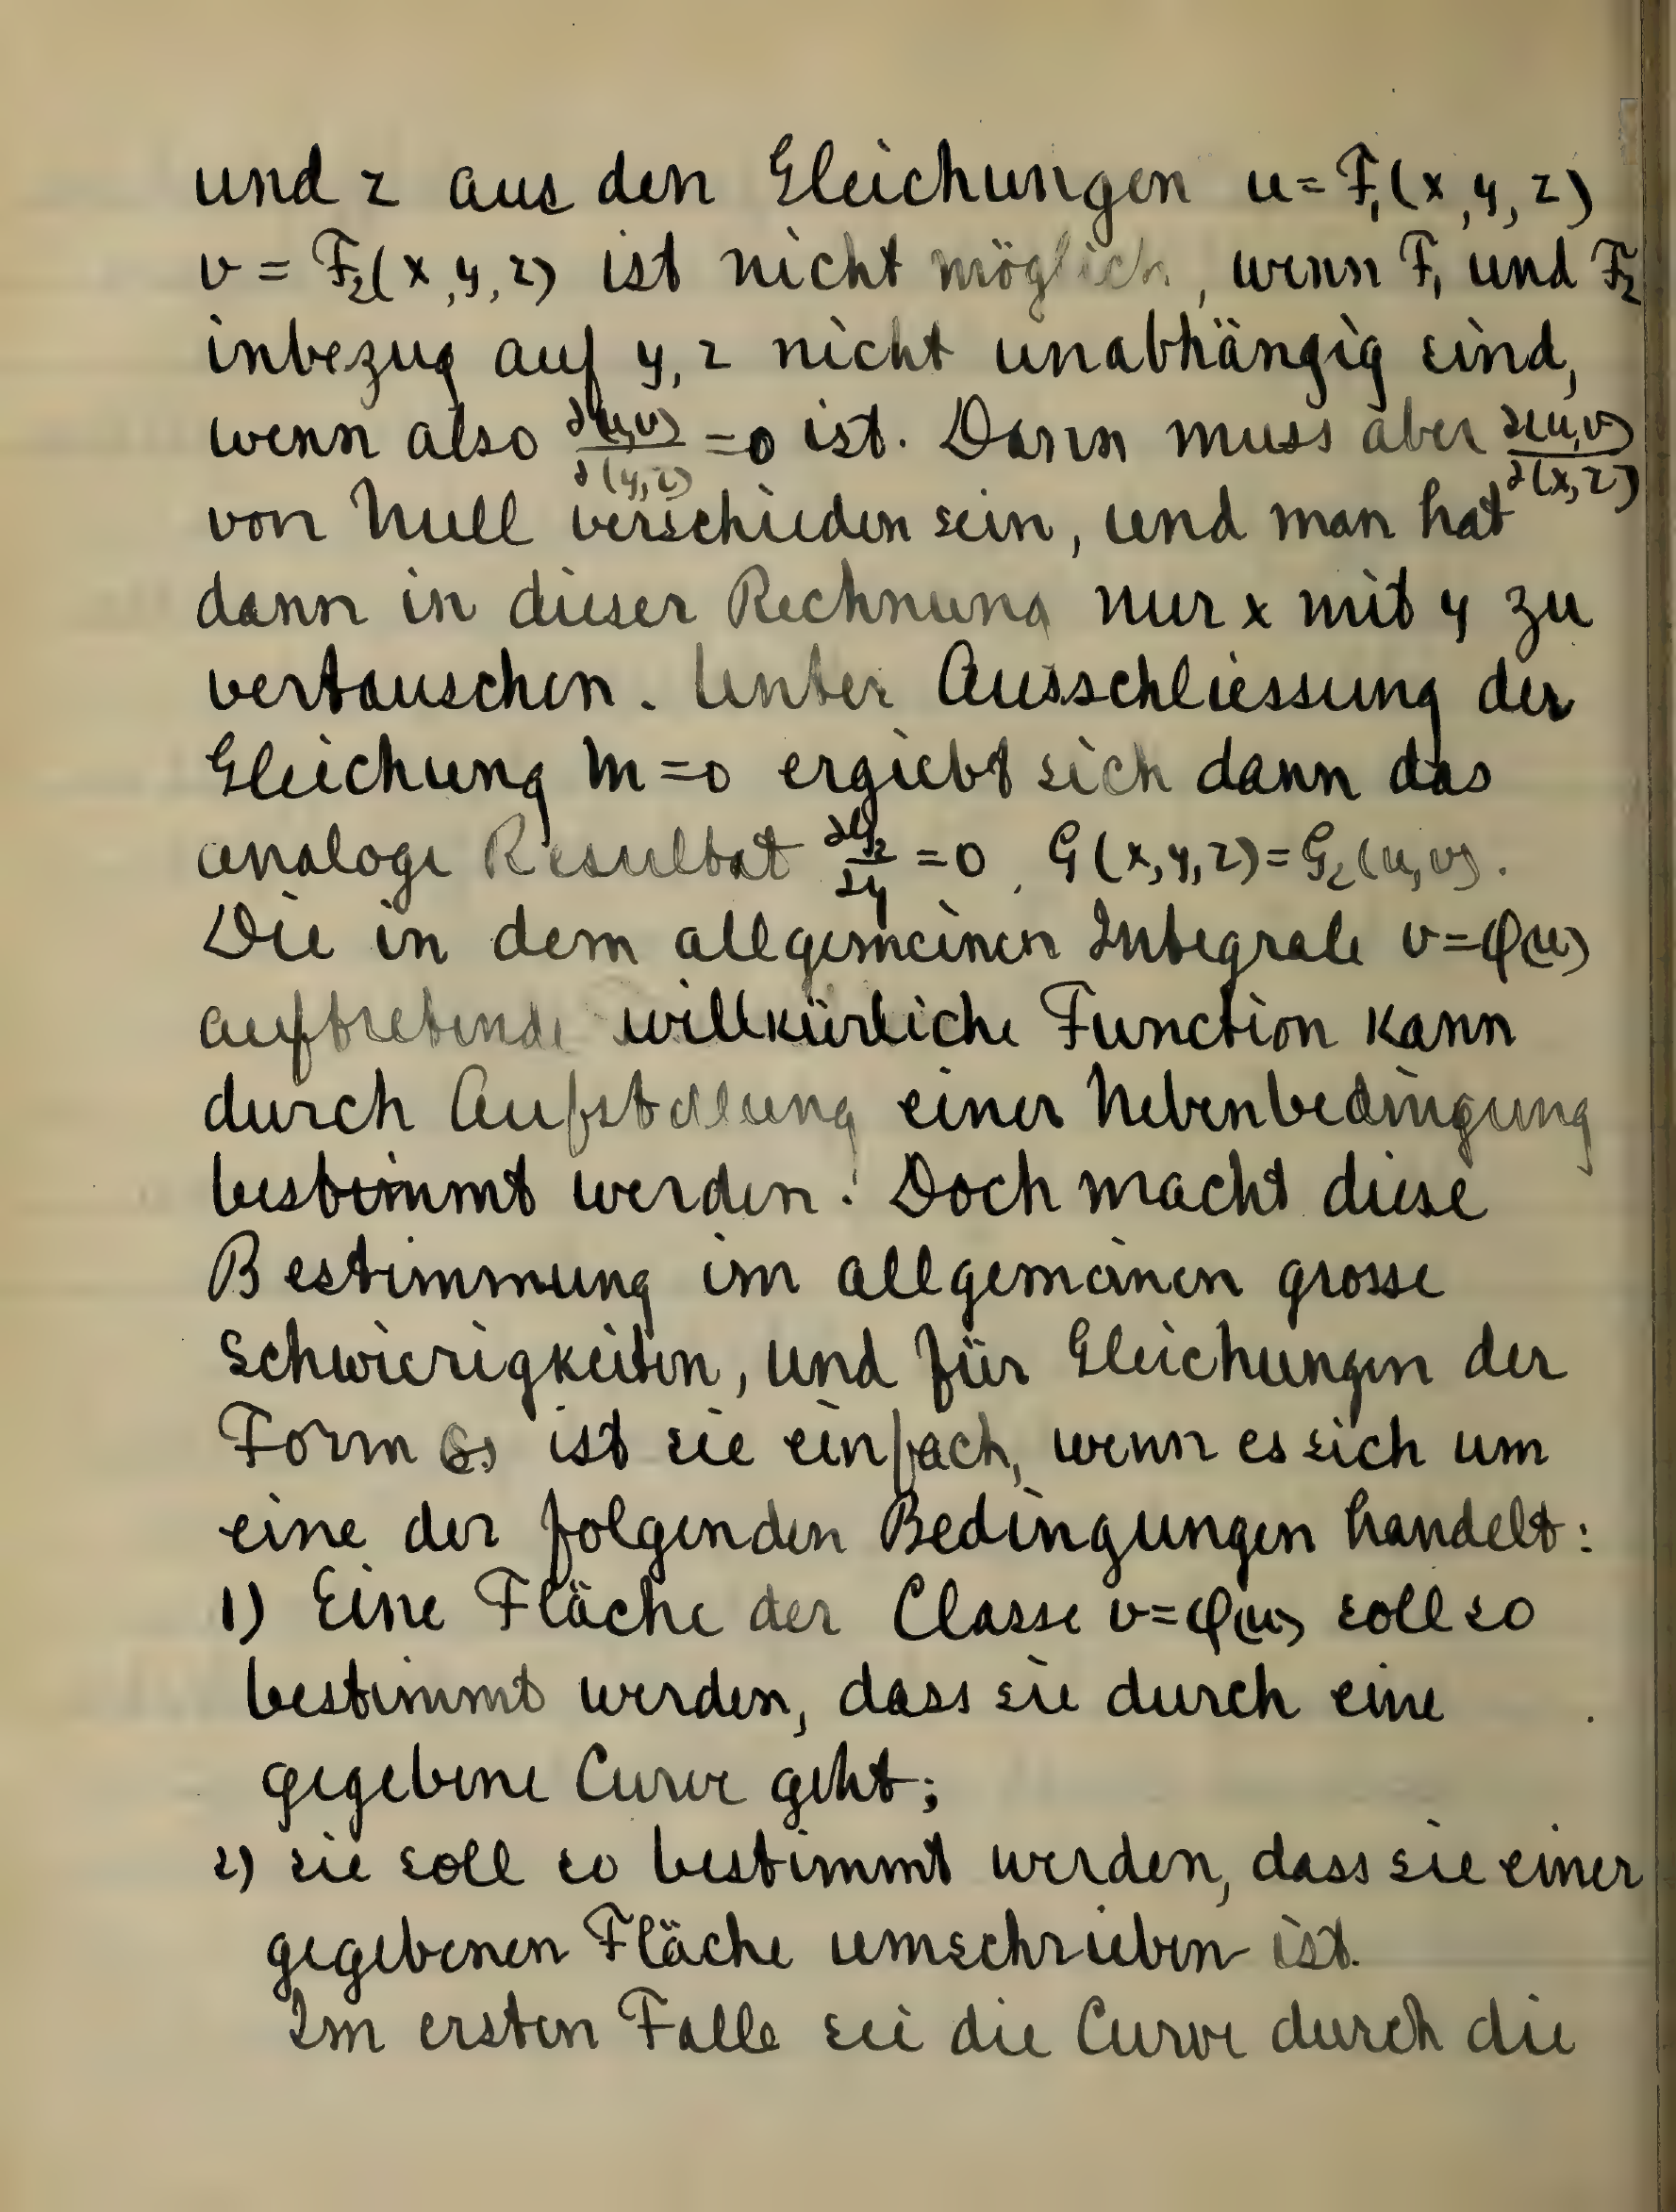 und z aus den Gleichungen u = F₁(x, y, z)
v = F₂(x, y, z) ist nicht möglich, wenn F₁ und F₂
inbezug auf y, z nicht unabhängig sind,
wenn also ∂(u,v)/∂(y,z) = 0 ist. Dann muss aber ∂(u,v)/∂(x,z)
von Null verschieden sein, und man hat
dann in dieser Rechnung nur x mit y zu
vertauschen. Unter Ausschliessung der
Gleichung M = 0 ergiebt sich dann das
analoge Resultat ∂G₂/∂y = 0, G(x,y,z) = G₂(u,v).
Die in dem allgemeinen Integrale v = φ(u)
auftretende willkürliche Function kann
durch Aufstellung einer Nebenbedingung
bestimmt werden. Doch macht diese
Bestimmung im allgemeinen grosse
Schwierigkeiten, und für Gleichungen der
Form ist sie einfach, wenn es sich um
eine der folgenden Bedingungen handelt:
1) Eine Fläche der Classe v = φ(u) soll so
bestimmt werden, dass sie durch eine
gegebene Curve geht;
2) sie soll so bestimmt werden, dass sie einer
gegebenen Fläche umschrieben ist.
Im ersten Falle sei die Curve durch die